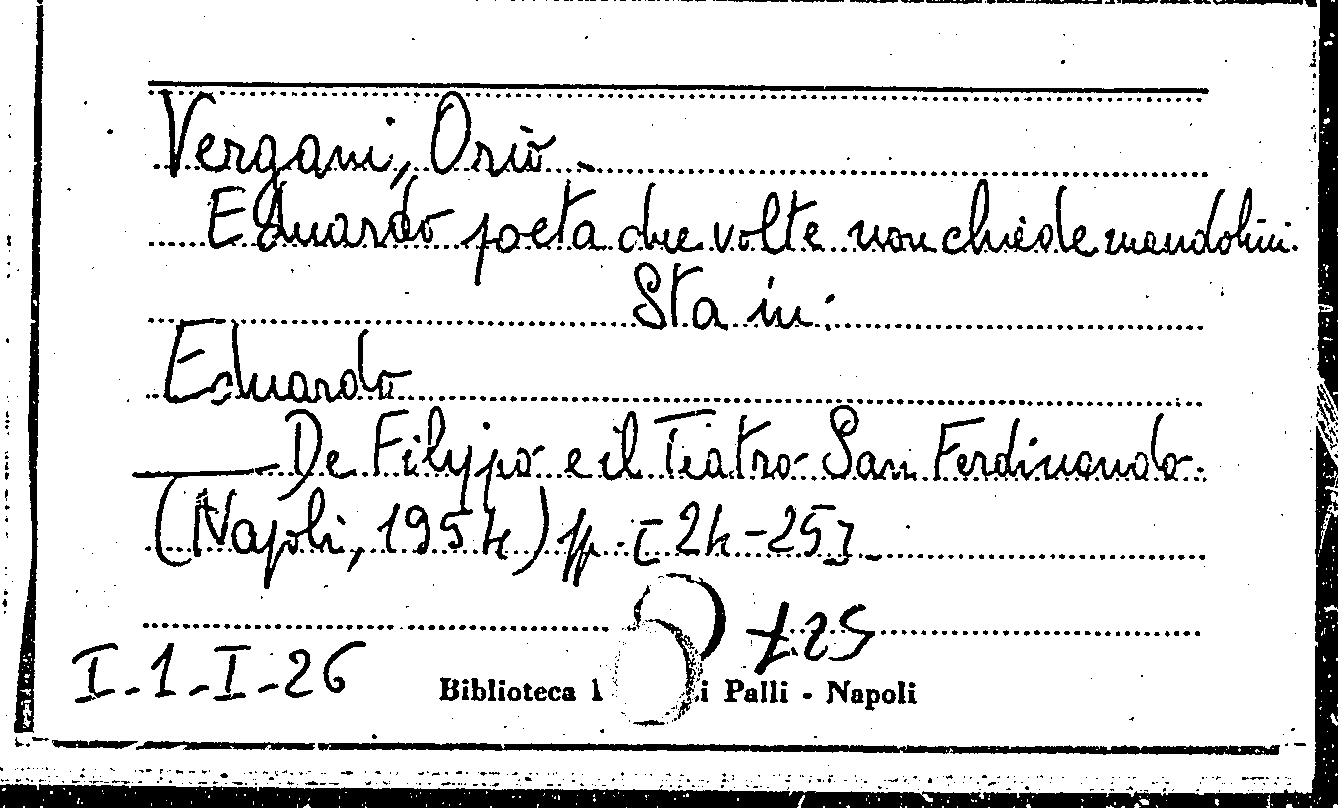 Vergani, Orio.
Eduardo poeta due volte non chiede mandolini.
Sta in:
Eduardo
De Filippo e il Teatro San Ferdinando.
(Napoli, 1954) pp. [24-25].
I-1-I-26
Biblioteca i Palli - Napoli